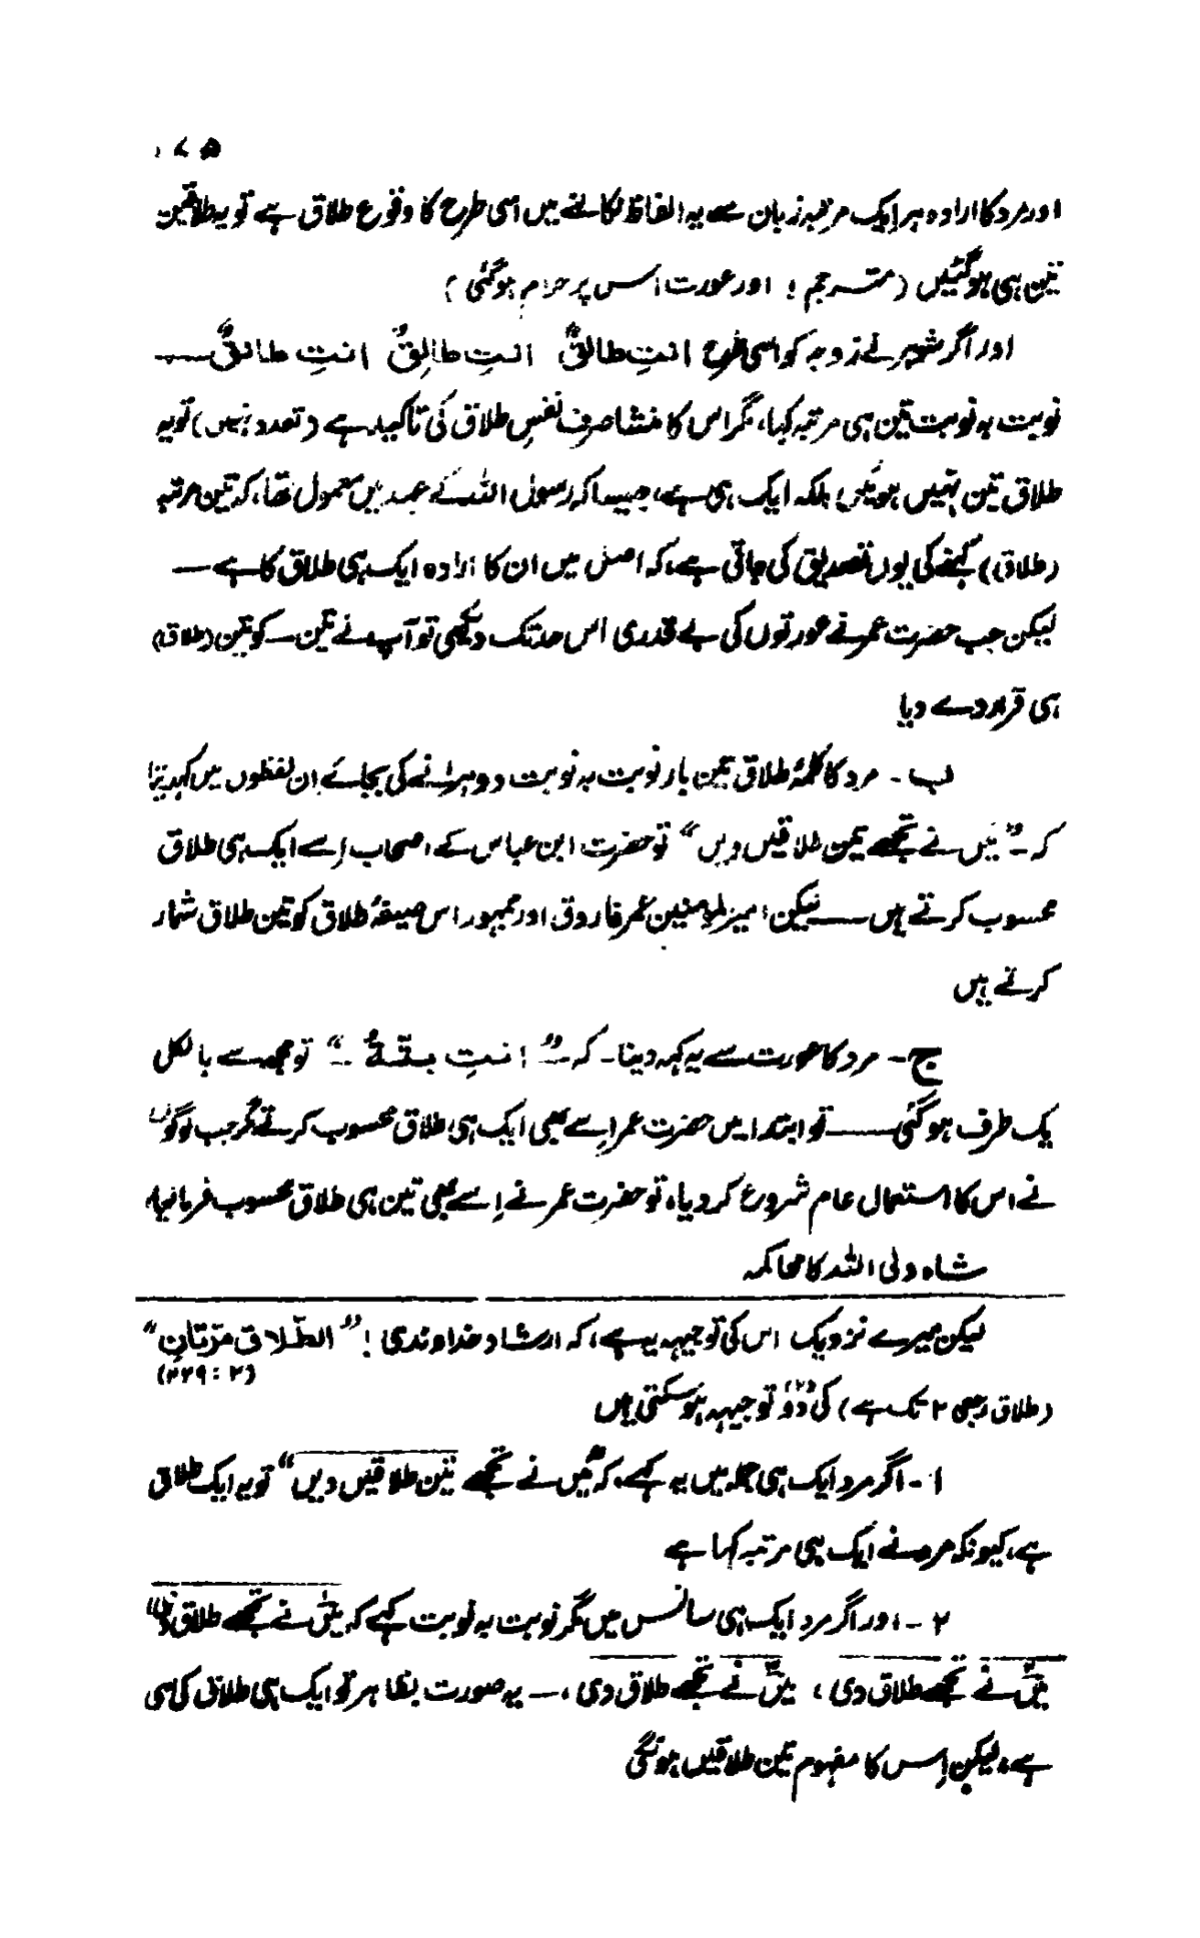 ۱۷۵
اور مرد کا ارادہ ہر ایک مرتبہ زبان سے یہ الفاظ نکالنے میں اسی طرح کا وقوع طلاق ہے تو یہ طلاقین
تین ہی ہوگئیں (مترجم ! اور عورت اس پر حرام ہوگئی)
اور اگر شوہر نے زوجہ کو اسی طرح انتِ طالقٌ انتِ طالِقٌ انتِ طالقٌ ـــ
نوبت بہ نوبت تین ہی مرتبہ کہا، مگر اس کا منشا صرف نفسِ طلاق کی تاکید ہے (تعدد نہیں) تو یہ
طلاق تین نہیں ہوئیں بلکہ ایک ہی ہے، جیسا کہ رسول اللہ کے عہد میں معمول تھا، کہ تین مرتبہ
(طلاق) کہنے کی یوں تصدیق کی جاتی ہے، کہ اصل میں ان کا ارادہ ایک ہی طلاق کا ہے —
لیکن جب حضرت عمر نے عورتوں کی بے قدری اس حد تک دیکھی تو آپ نے تین ــ کو تین (طلاق)
ہی قرار دے دیا
ب ۔ مرد کا کلمۂ طلاق تین بار نوبت بہ نوبت دوہرانے کی بجائے ان لفظوں میں کہدینا
کہ ۔ ”میں نے تجھے تین طلاقیں دیں“ تو حضرت ابن عباس کے اصحاب اِسے ایک ہی طلاق
محسوب کرتے ہیں ـــ لیکن امیر المومنین عمر فاروق اور جمہور اس صیغۂ طلاق کو تین طلاق شمار
کرتے ہیں
ج ۔ مرد کا عورت سے یہ کہہ دینا ۔ کہ ۔ ” انتِ بتّةٌ ۔“ تو مجھ سے بالکل
یک طرف ہوگئی ـــ تو ابتدا میں حضرت عمر اِسے بھی ایک ہی طلاق محسوب کرتے مگر جب لوگوں
نے اس کا استعمال عام شروع کر دیا، تو حضرت عمر نے اِسے بھی تین ہی طلاق محسوب فرمالیا،
شاہ ولی اللہ کا محاکمہ
لیکن میرے نزدیک اس کی توجیہہ یہ ہے، کہ ارشاد خداوندی ! ”الطّلاق مرّتان“
(۲ : ۲۲۹)
(طلاق رجعی ۲ تک ہے) کی دُو (۲) توجیہہ ہو سکتی ہیں
۱ ۔ اگر مرد ایک ہی جملہ میں یہ کہے، کہ ”میں نے تجھے تین طلاقیں دیں“ تو یہ ایک طلاق
ہے، کیونکہ مرد نے ایک ہی مرتبہ کہا ہے
۲ ۔ اور اگر مرد ایک ہی سانس میں مگر نوبت بہ نوبت کہے کہ میں نے تجھے طلاق دی،
میں نے تجھے طلاق دی ، میں نے تجھے طلاق دی ، ــ یہ صورت بظاہر تو ایک ہی طلاق کی سی
ہے، لیکن اِس کا مفہوم تین طلاقیں ہونگی